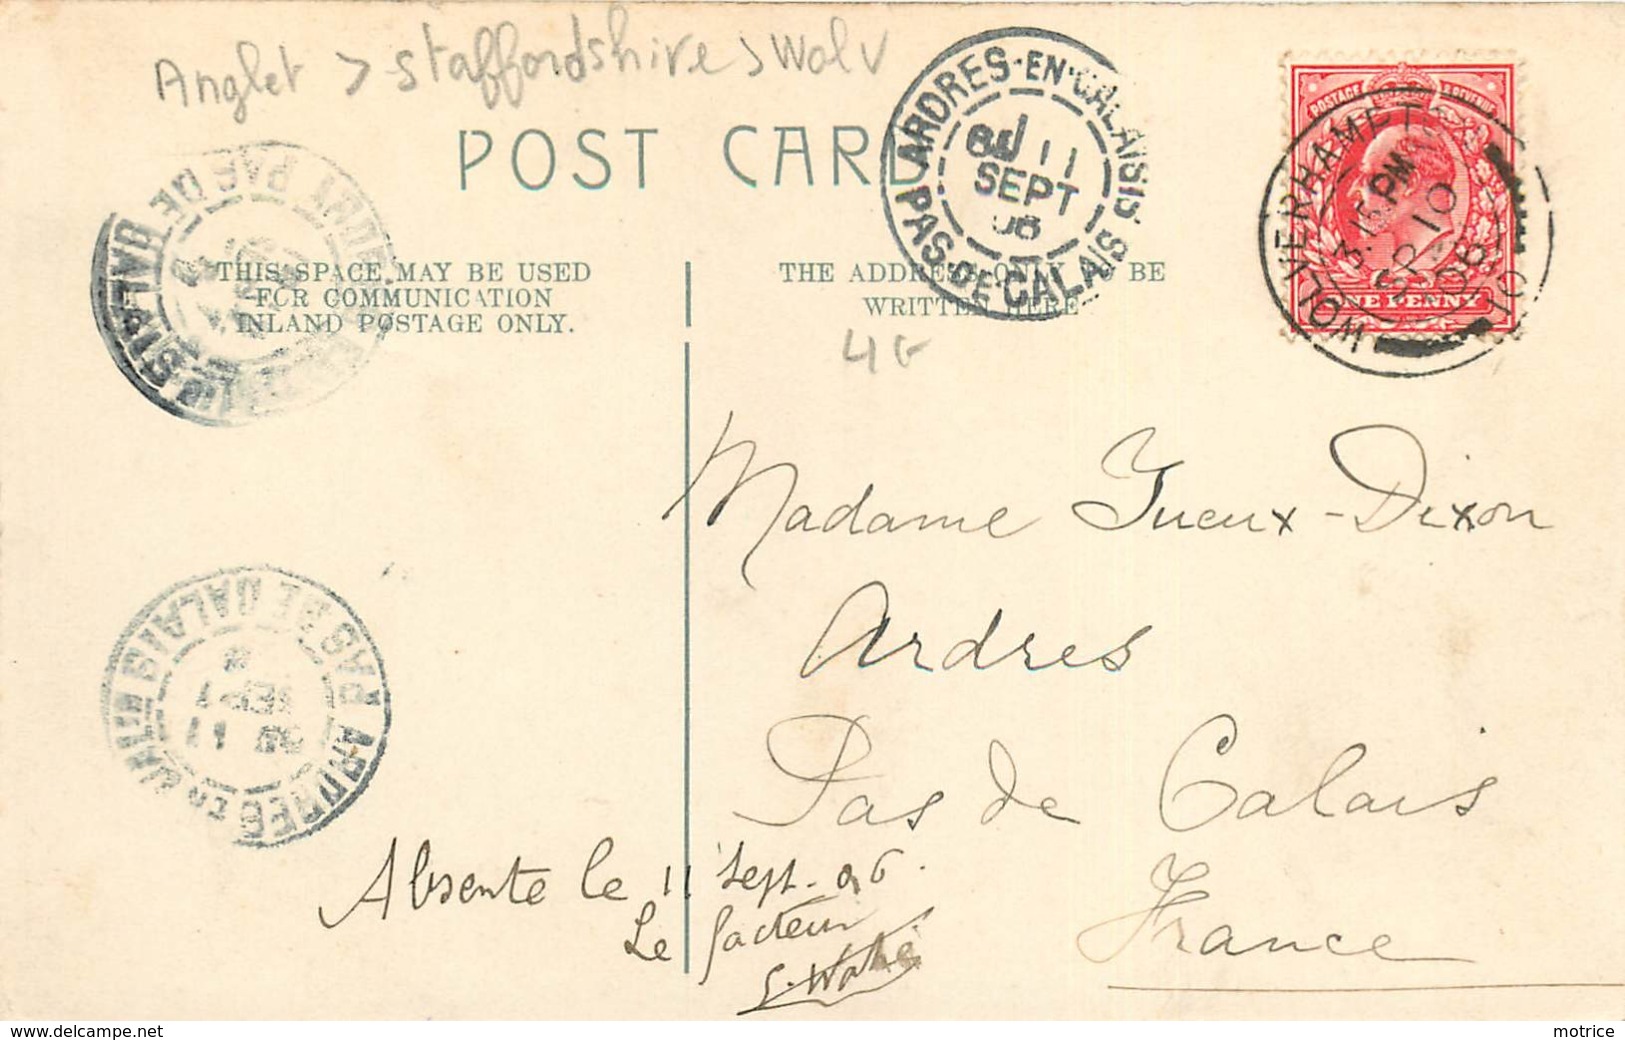 Anglet > Staffordshire > Wolv
POST CARD
ARDRES-EN-CALAISIS
11
SEPT
06
PAS-DE-CALAIS
POSTAGE & REVENUE
ONE PENNY
WOLVERHAMPTON
3.15 PM
SP 10
06
THIS SPACE MAY BE USED
FOR COMMUNICATION
INLAND POSTAGE ONLY.
THE ADDRESS ONLY TO BE
WRITTEN HERE
PAS DE CALAIS
PAS DE CALAIS
11
SEPT
Madame Jueux-Dixon
Ardres
Pas de Calais
France
Absente le 11 Sept. 06.
Le facteur
www.delcampe.net
motrice